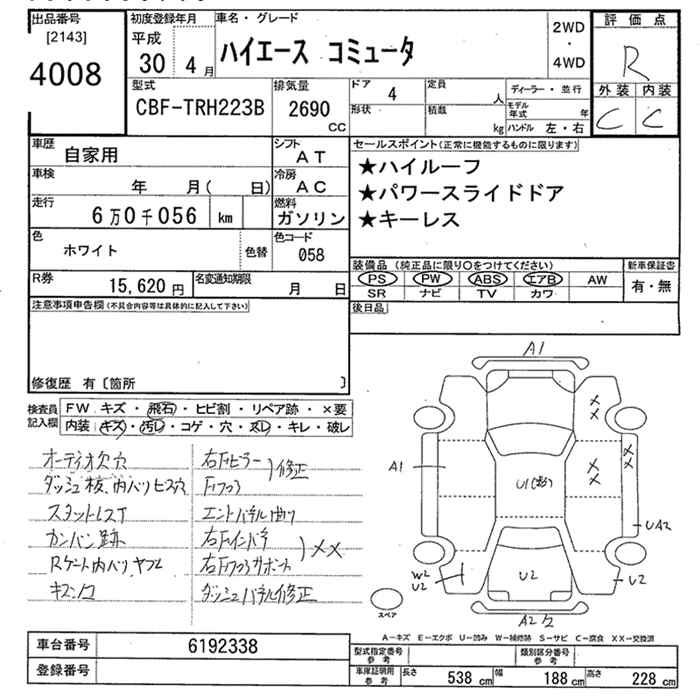 出品番号
[2143]
4008
初度登録年月
平成
30 4月
車名・グレード
ハイエース コミュータ
2WD
・
4WD
評価点
R
外装 内装
C C
型式
CBF-TRH223B
排気量
2690
CC
ドア
4
定員
人
ディーラー・並行
形状
積載
kg
モデル年式 年
ハンドル 左・右
車歴
自家用
シフト
AT
車検
年 月( 日)
冷房
AC
走行
6万0千056 km
燃料
ガソリン
色
ホワイト
色替
色コード
058
R券
15,620 円
名変通知期限
月 日
セールスポイント(正常に機能するものに限ります)
★ハイルーフ
★パワースライドドア
★キーレス
装備品 (純正品に限り○をつけてください)
PS PW ABS エアB AW
SR ナビ TV カワ
新車保証書
有・無
後日品
注意事項申告欄(不具合内容等は具体的に記入して下さい)
修復歴 有〔箇所 〕
検査員
記入欄
FW キズ・飛石・ヒビ割・リペア跡・×要
内装 キズ・汚レ・コゲ・穴・スレ・キレ・破レ
オーディオ欠穴
ダッシュ枝、内ハリビス穴
カンバン跡
右Fピラー
修正
エンドパネル曲り
右Fインパネ
××
右Fフロアサポート
ダッシュパネル修正
A1
××
A1
U1
××
××
UA2
W2
U2
U2
U2
スペア
A2
A-キズ E-エクボ U-凹み W-補修跡 S-サビ C-腐食 XX-交換済
車台番号
6192338
登録番号
型式指定番号
参考
類別区分番号
参考
車庫証明用
参考
長さ 538 cm 幅 188 cm 高さ 228 cm